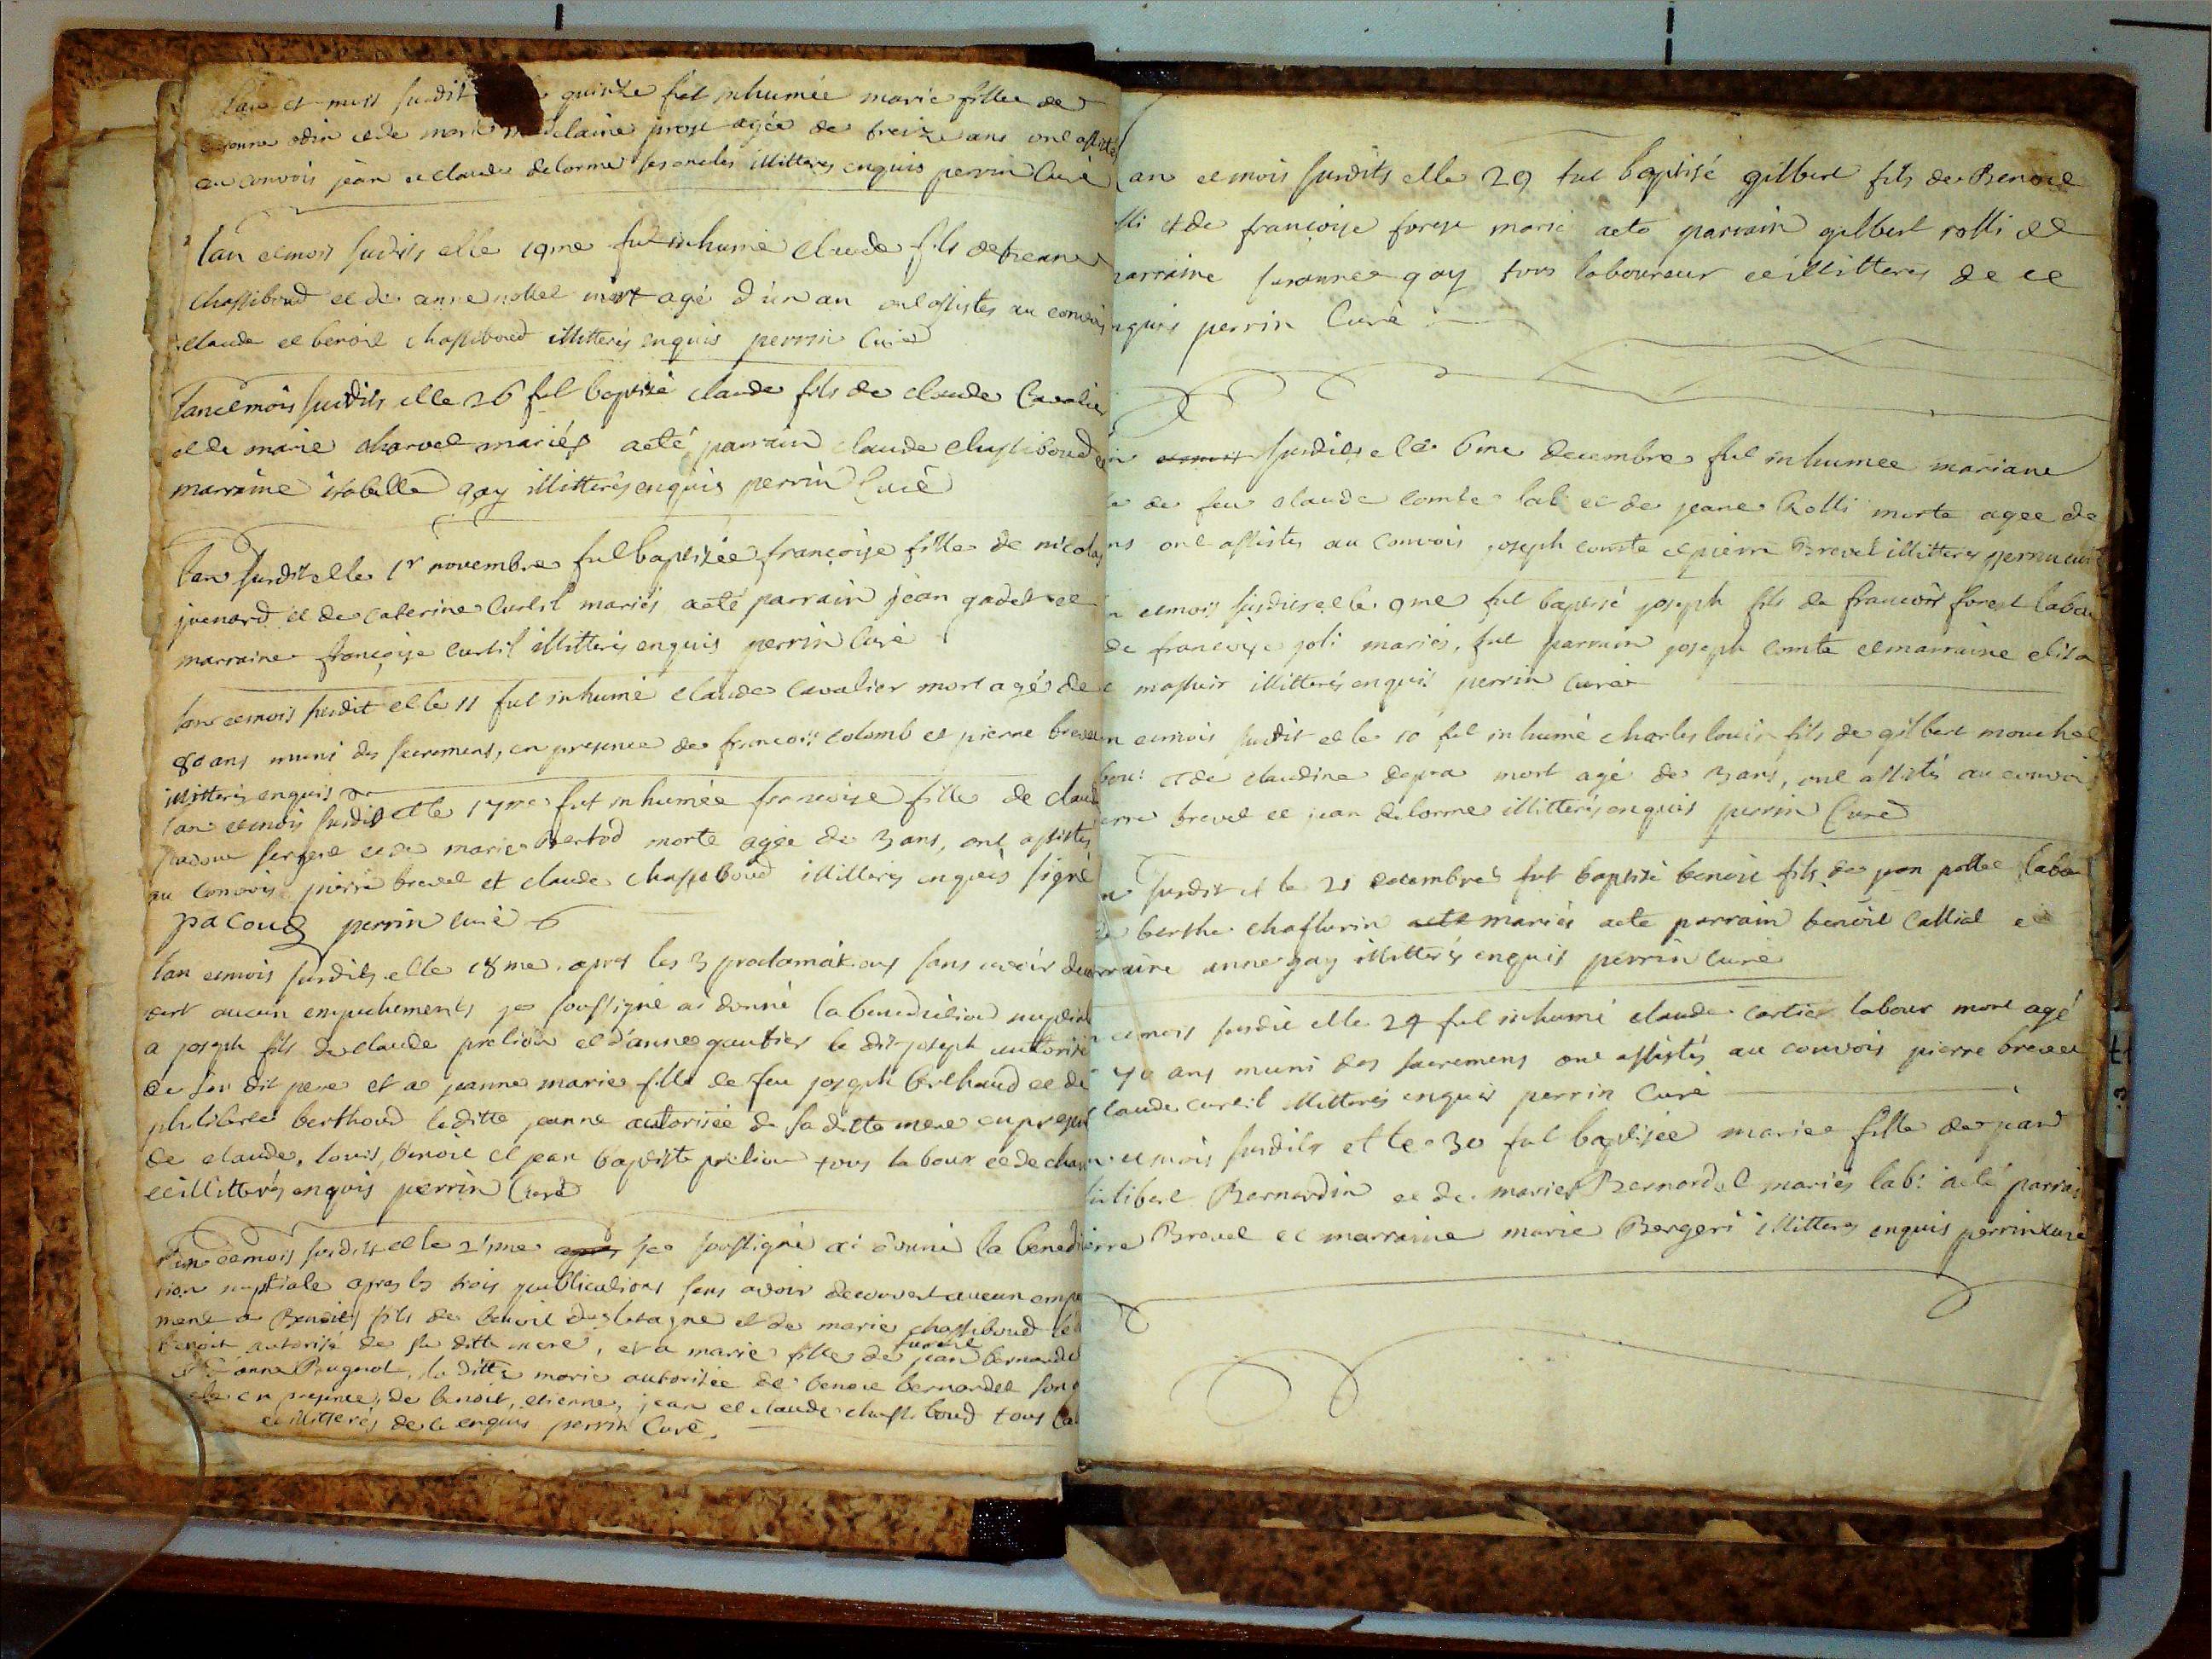 lan et mois susdit quinze fut inhumée marie fille de
odin et de marie agée de treize ans ont assistés
au convois jean et claude delorme ses oncles illitterés enquis perrin Curé
lan et mois susdits et le 19me fut inhumé claude fils de
Chassiboud et de anne mort agé d'un an ont assistés au convois
claude et benoit chassiboud illitterés enquis perrin Curé
lan et mois susdits et le 26 fut baptisé claude fils de claude Cavalier
et de marie charvet mariés a eté parrain claude chassiboud et
marraine isabelle gay illitterés enquis perrin Curé
lan susdit et le 1r novembre fut baptisée françoise fille de nicolas
juenard et de caterine Curtil mariés a eté parrain jean gadet et
marraine françoise curtil illitterés enquis perrin Curé
lan et mois susdit et le 11 fut inhumé claude Cavalier mort agé de
80 ans muni des sacremens, en presence de francois colomb et pierre brevet
illitterés enquis
lan et mois susdit et le 17me fut inhumée francoise fille de claude
pacoud et de marie Bertod morte agée de 3 ans, ont assistés
au Convois pierre brevet et claude chassiboud illitterés enquis signé
pacoud perrin curé
lan et mois susdits et le 18me apres les 3 proclamations sans avoir decou
vert aucun empechements je soussigné ai donné la benediction nuptiale
a joseph fils de claude prelion et d'anne gautier le dit joseph authorisé
de son dit pere et a jeanne marie fille de feu joseph berthoud et de
philiberte berthoud la ditte jeanne autorisée de sa ditte mere en presence
de claude, louis, benoit et jean baptiste prelion tous labour et de
et illitterés enquis perrin Curé
lan et mois susdits et le 21me apres je soussigné ai donné la benedic
tion nuptiale apres les trois publications sans avoir decouvert aucun empe
ment a Benoit fils de benoit et de marie chassiboud le
benoit autorisé de sa ditte mere, et a marie fille de jean bernardet
anne Pugnot, la ditte marie autorisée de benoit bernardet son
en presence de benoit, etienne, jean et claude chassiboud tous lab
et illitterés de ce enquis perrin Curé.
lan et mois susdits et le 29 fut baptisé gilbert fils de Benoit
et de françoise forest marié a eté parrain gilbert rolli et
marraine susanne gay tous laboureur et illitterés de ce
enquis perrin Curé
susdits et le 6me decembre fut inhumée mariane
de feu claude comte lab et de jeane Rolli morte agée de
ans ont assistés au Convois joseph comte et pierre Brevet illitterés perrin curé
et mois susdits et le 9me fut baptisé joseph fils de francois forest labou
de françoise joli mariés, fut parrain joseph comte et marraine elisa
illitterés enquis perrin Curé
et mois susdit et le 10 fut inhumé charles louis fils de gilbert mouchet
labou: et de claudine mort agé de 3 ans, ont assistés au convoi
pierre brevet et jean delorme illitterés enquis perrin Curé
susdit et le 21 decembre fut baptisé benoit fils de jean pollet labo
de berthe a eté mariés a eté parrain benoit et
marraine anne gay illitterés enquis perrin Curé
et mois susdit et le 24 fut inhumé claude cartier labour mort agé
70 ans muni des sacremens ont assistés au convois pierre brevet
claude curtil illitterés enquis perrin Curé
et mois susdits et le 30 fut baptisée marie fille de jean
philibert Bernardin et de marie Bernardet mariés lab: a eté parrai
pierre Brevet et marraine marie Bergeri illitterés enquis perrin curé